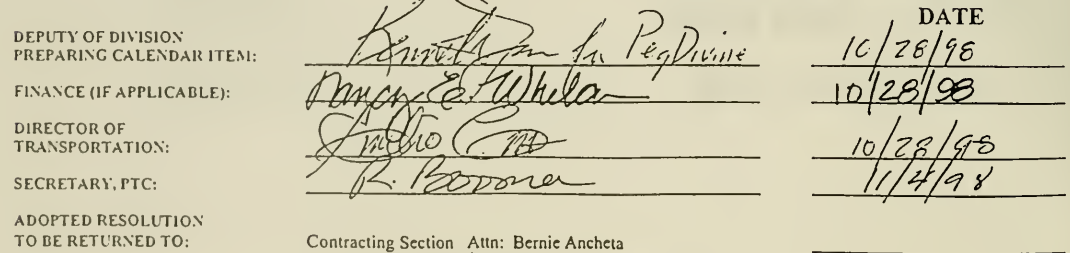 DATE
DEPUTY OF DIVISION
PREPARING CALENDAR ITEM: for Peg Divine 10/28/98
FINANCE (IF APPLICABLE): Nancy E. Whelan 10/28/98
DIRECTOR OF
TRANSPORTATION: 10/28/98
SECRETARY, PTC: R. 11/4/98
ADOPTED RESOLUTION
TO BE RETURNED TO: Contracting Section Attn: Bernie Ancheta